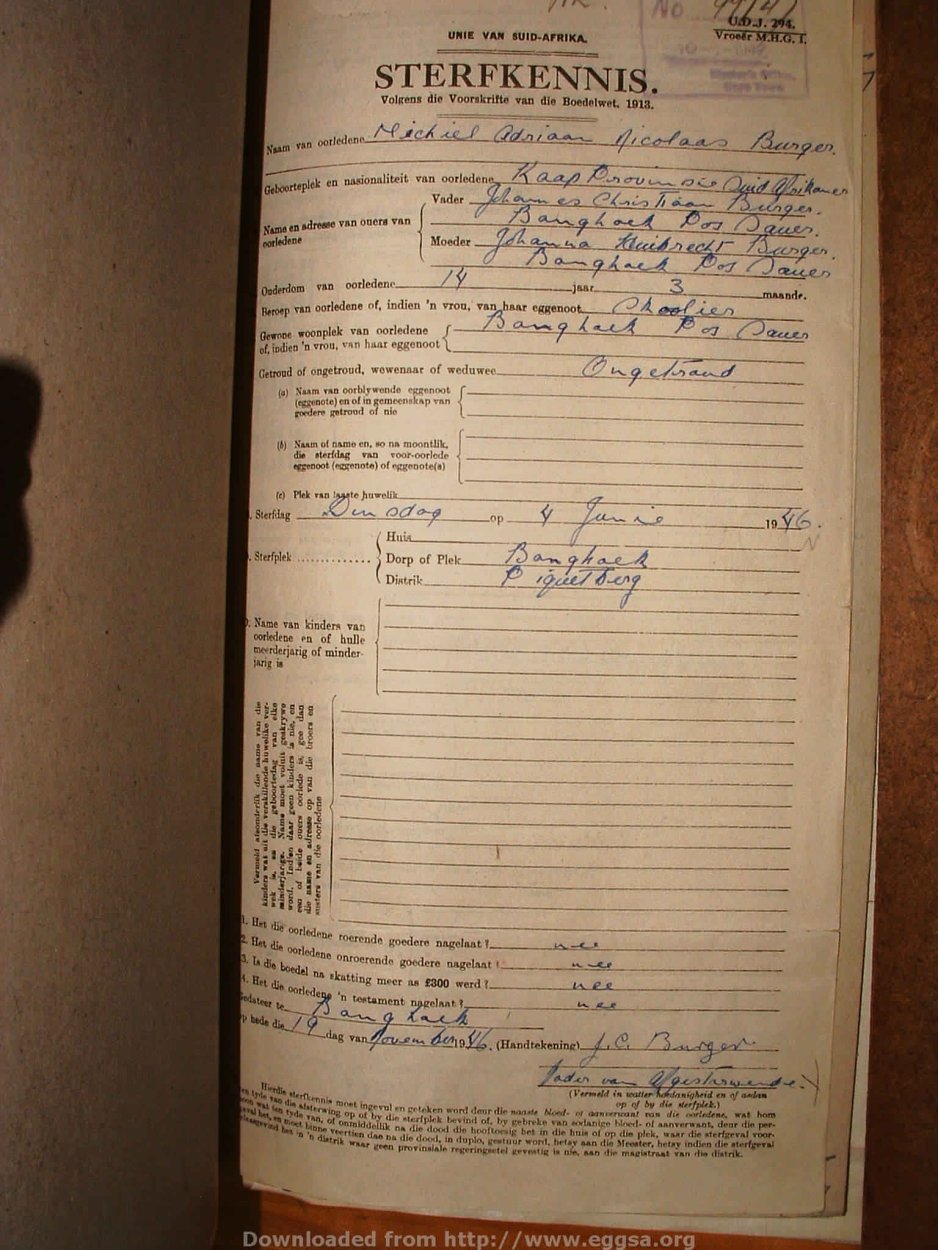 No 99/47
U.D.J. 294.
Vroeër M.H.G. I.
UNIE VAN SUID-AFRIKA.
STERFKENNIS.
Volgens die Voorskrifte van die Boedelwet, 1913.
Naam van oorledene Michiel Adriaan Nicolaas Burger.
Geboorteplek en nasionaliteit van oorledene Kaap Provinsie Suid Afrikaner
Name en adresse van ouers van oorledene
Vader Johannes Christiaan Burger.
Banghoek Pos Sauer.
Moeder Johanna Huibrecht Burger.
Banghoek Pos Sauer
Ouderdom van oorledene 14 jaar 3 maande.
Beroep van oorledene of, indien 'n vrou, van haar eggenoot Skoolier
Gewone woonplek van oorledene of, indien 'n vrou, van haar eggenoot Banghoek Pos Sauer
Getroud of ongetroud, wewenaar of weduwee Ongetroud
(a) Naam van oorblywende eggenoot
(eggenote) en of in gemeenskap van
goedere getroud of nie
(b) Naam of name en, so na moontlik,
die sterfdag van voor-oorlede
eggenoot (eggenote) of eggenote(s)
(c) Plek van laaste huwelik
Sterfdag Dinsdag op 4 Junie 1946.
Sterfplek
Huis
Dorp of Plek Banghoek
Distrik Piquetberg
Name van kinders van
oorledene en of hulle
meerderjarig of minder-
jarig is
Vermeld afsonderlik die name van die
kinders wat uit die verskillende huwelike ver-
wek is, en die geboortedag van elke
minderjarige. Name moet voluit geskrywe
word. Indien daar geen kinders is nie, en
een of beide ouers oorlede is, gee dan
die name en adresse op van die broers en
susters van die oorledene
1. Het die oorledene roerende goedere nagelaat? nee
2. Het die oorledene onroerende goedere nagelaat? nee
3. Is die boedel na skatting meer as £300 werd? nee
4. Het die oorledene 'n testament nagelaat? nee
Gedateer te Banghoek
op hede die 19 dag van November 1946. (Handtekening) J.C. Burger
Vader van Afgestorwende.
(Vermeld in watter hoedanigheid en of aedan
op of by die sterfplek.)
Hierdie sterfkennis moet ingevul en geteken word deur die naaste bloed- of aanverwant van die oorledene, wat hom
ten tyde van die afsterwing op of by die sterfplek bevind of, by gebreke van sodanige bloed- of aanverwant, deur die per-
soon wat ten tyde van, of onmiddellik na die dood die hooftoesig het in die huis of op die plek, waar die sterfgeval voor-
geval het, en moet binne veertien dae na die dood, in duplo, gestuur word, hetsy aan die Meester, hetsy indien die sterfgeval
plaasgevind het in 'n distrik waar geen provinsiale regeringsetel gevestig is nie, aan die magistraat van die distrik.
Downloaded from http://www.eggsa.org